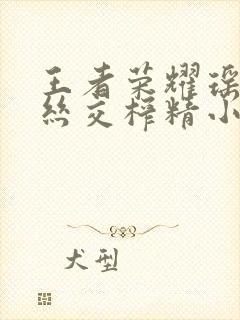 王者荣耀瑶
丝交榨精小
犬型